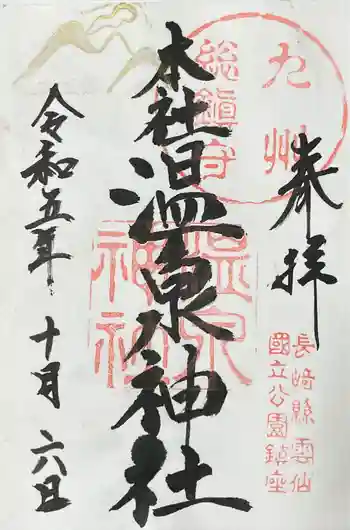 奉拝
九州
総鎮守
長崎縣雲仙
國立公園鎮座
本社温泉神社
温泉
神社
令和五年十月六日